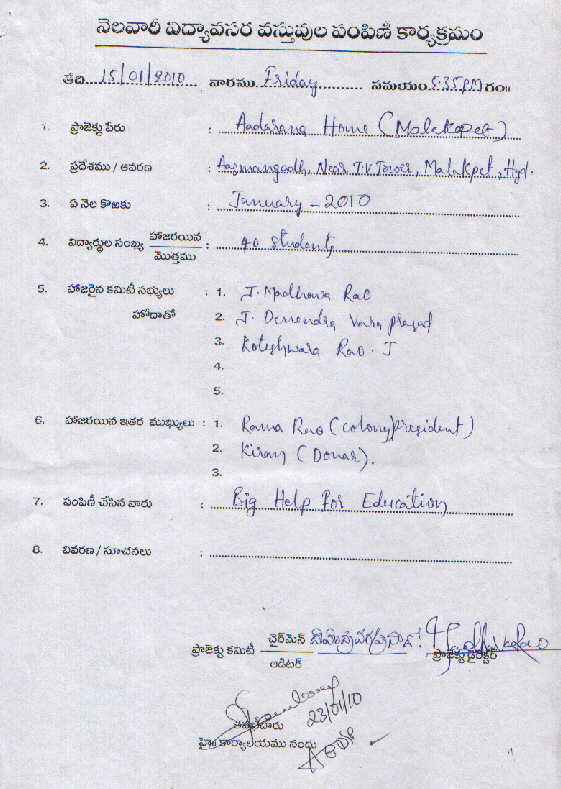 నెలవారీ విద్యావసర వస్తువుల పంపిణీ కార్యక్రమం
తేది 15/01/2010 వారము Friday సమయం 5.35 PM గం॥
1. ప్రాజెక్టు పేరు : Aadarana Home (Malakpet)
2. ప్రదేశము / ఆవరణ : Asmangadh, Near T.V. Tower, Malakpet, Hyd.
3. ఏ నెల కొఱకు : January - 2010
4. విద్యార్థుల సంఖ్య హాజరయిన : 40 students
మొత్తము
5. హాజరైన కమిటీ సభ్యులు : 1. J. Madhava Rao
హోదాతో 2. J. Devendra Vara prasad
3. Koteshwara Rao. J
4.
5.
6. హాజరయిన ఇతర ముఖ్యులు : 1. Rama Rao (colony president)
2. Kiran (Donar).
3.
7. పంపిణీ చేసిన వారు : Big Help For Education
8. వివరణ / సూచనలు :
ప్రాజెక్టు కమిటీ ఛైర్‌మెన్ ప్రాజెక్టు డైరెక్టర్
ఆడిటర్
23/01/10
కార్యాలయము నందు